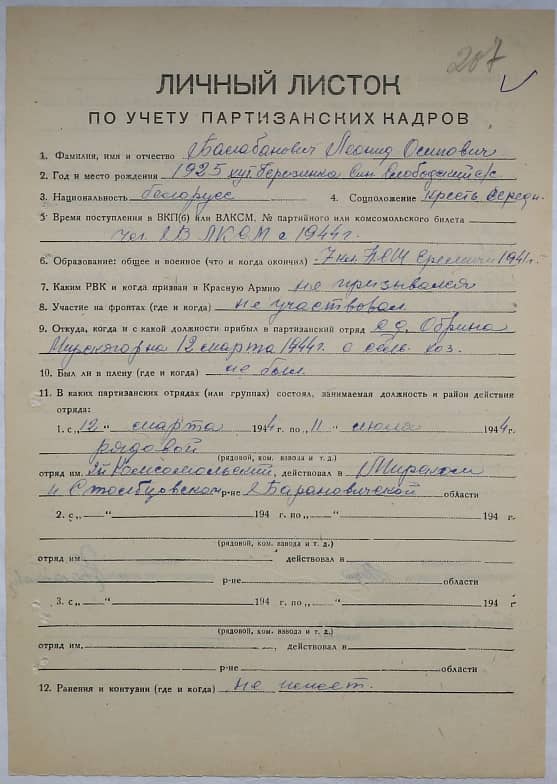 207
ЛИЧНЫЙ ЛИСТОК
ПО УЧЕТУ ПАРТИЗАНСКИХ КАДРОВ
1. Фамилия, имя и отчество Балабанович Леонид Осипович
2. Год и место рождения 1925 хут. Березинка с/с
3. Национальность белорусс 4. Соцположение крест. середн.
5. Время поступления в ВКП(б) или ВЛКСМ, № партийного или комсомольского билета
чл. ЛКСМ с 1944 г.
6. Образование: общее и военное (что и когда окончил) 7 кл. Еремичи 1941 г.
7. Каким РВК и когда призван в Красную Армию не призывался
8. Участие на фронтах (где и когда) не участвовал
9. Откуда, когда и с какой должности прибыл в партизанский отряд с д. Обрина
Мирского р-на 12 марта 1944 г. с сельс. хоз.
10. Был ли в плену (где и когда) не был
11. В каких партизанских отрядах (или группах) состоял, занимаемая должность и район действия
отряда:
1. с „12" марта 1944 г. по „11" июля 1944 г.
рядовой
(рядовой, ком. взвода и т. д.)
отряд им. Комсомольский, действовал в Мирском
и Столбцовском р-не Барановичской области
2. с „ " 194 г. по „ " 194 г.
(рядовой, ком. взвода и т. д.)
отряд им. действовал в
р-не области
3. с „ " 194 г. по „ " 194 г.
(рядовой, ком. взвода и т. д.)
отряд им. , действовал в
р-не области
12. Ранения и контузии (где и когда) не имеет.